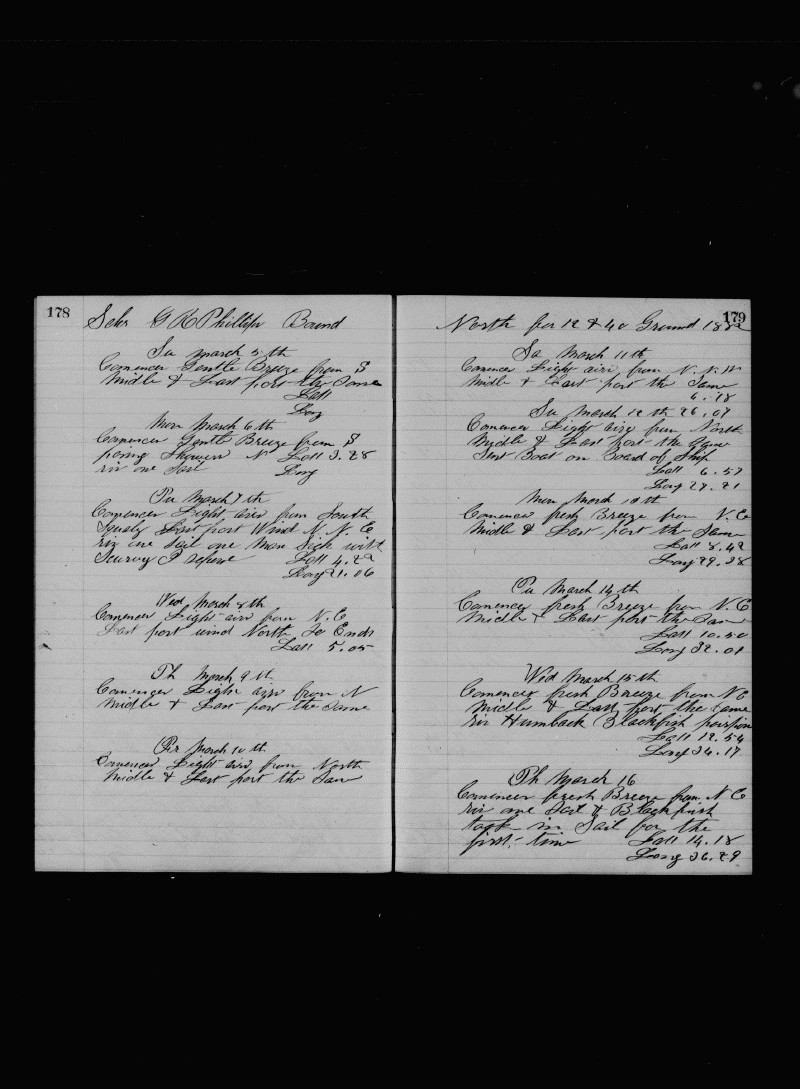 178
Schr G R Phillips Bound
Su March 5 th
Comences Gentle Breeze from S
Midle & Last port the Same
Latt
Long
Mon March 6 th
Comences Gentle Breeze from S
Showers N Latt 3.28
one Sail Long
Tu March 7 th
Comences Light airs from South
Squaly Last port Wind N. N. E
one Sail one Man Sick with
Scurvy I Latt 4.29
Long 31.06
Wed March 8 th
Comences Light airs from N. E
Last port wind North So Ends
Latt 5.05
Th March 9 th
Comences Light airs from N
Midle & Last port the Same
Fir March 10 th
Comences Light airs from North
Midle & Last port the Same
179
North for 12 & 40 Ground 1882
Sa March 11 th
Comences Light airs from N. N. W
Midle & Last port the Same
6.18
Su March 12 th 26.07
Comences Light airs from North
Midle & Last port the Same
Boat on Board of Ship
Latt 6.57
Long 27.21
Mon March 13 th
Comences fresh Breeze from N. E
Midle & Last port the Same
Latt 8.42
Long 29.28
Tu March 14 th
Comences fresh Breeze from N. E
Midle & Last port the Same
Latt 10.50
Long 32.01
Wed March 15 th
Comences fresh Breeze from N E
Midle & Last port the Same
Humback Blackfish
Latt 12.54
Long 34.17
Th March 16
Comences fresh Breeze from N E
one Sail & Blackfish
took in Sail for the
first time Latt 14.18
Long 36.29